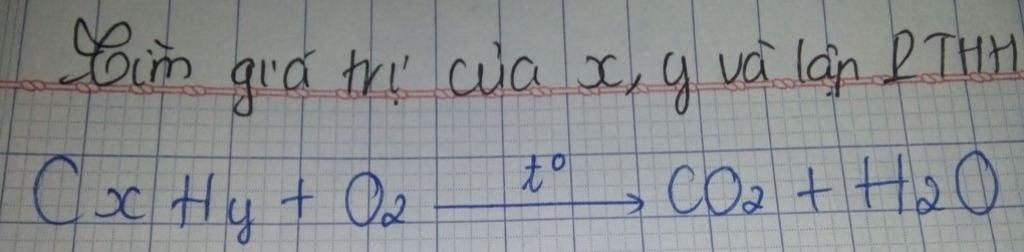 Tìm giá trị của x, y và lập PTHH
CxHy + O2 t° → CO2 + H2O